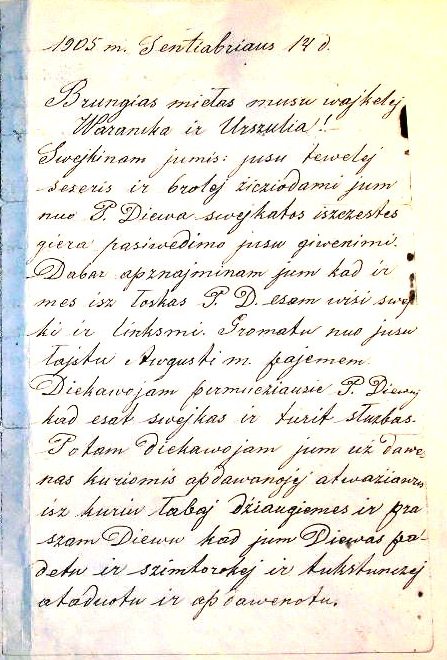 1905 m. Sentiabriaus 14 d.
Brungias miełas musu wajkelej
Waranka ir Urszulia!
Swejkinam jumis: jusu tewelej
seseris ir brolej žicziodami jum
nuo P. Diewa swejkatos iszczestes
giera pasiwedimo jusu giwenimi.
Dabar apznajminam jum kad ir
mes isz łoskas P. D. esam wisi swej
ki ir linksmi. Gromatu nuo jusu
łajstu Awgusti m. pajemem.
Diekawojam permiieziausie P. Diewuj
kad esat swejkas ir turit słuzbas.
Potam diekawojam jum už dawe-
nas kuriomis apdawanojej atwaziawus
isz kuriu łabaj džiaugiemes ir pra
szam Diewu kad jum Diewas pa-
detu ir szimtorokej ir tukstunczej
ataduotu ir apdawenotu.